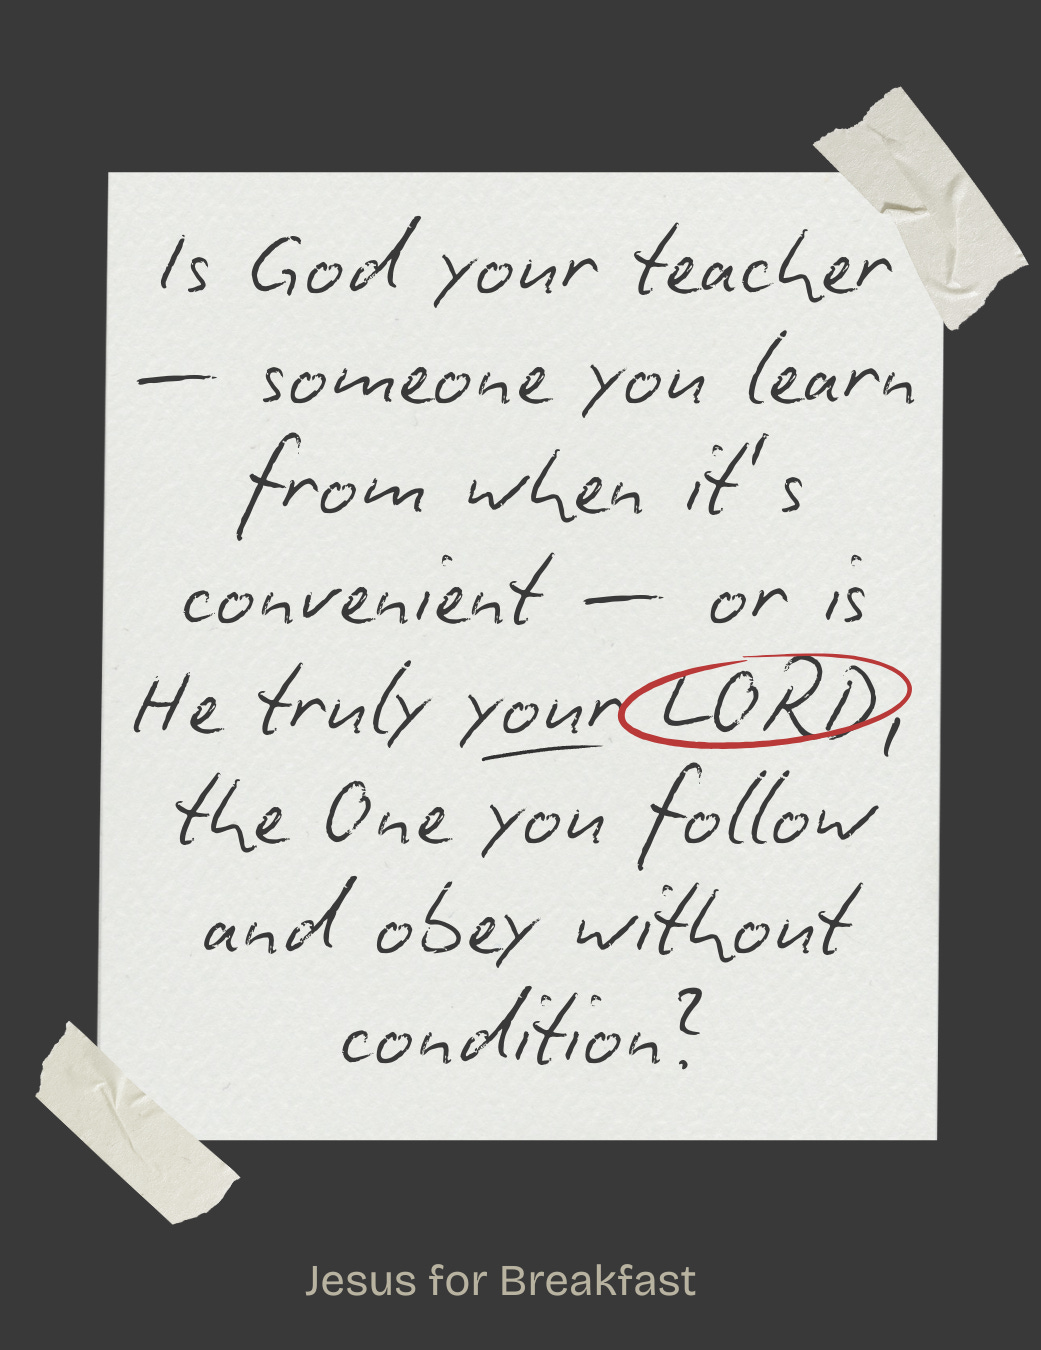 Is God your teacher
— someone you learn
from when it's
convenient — or is
He truly your LORD,
the One you follow
and obey without
condition?
Jesus for Breakfast